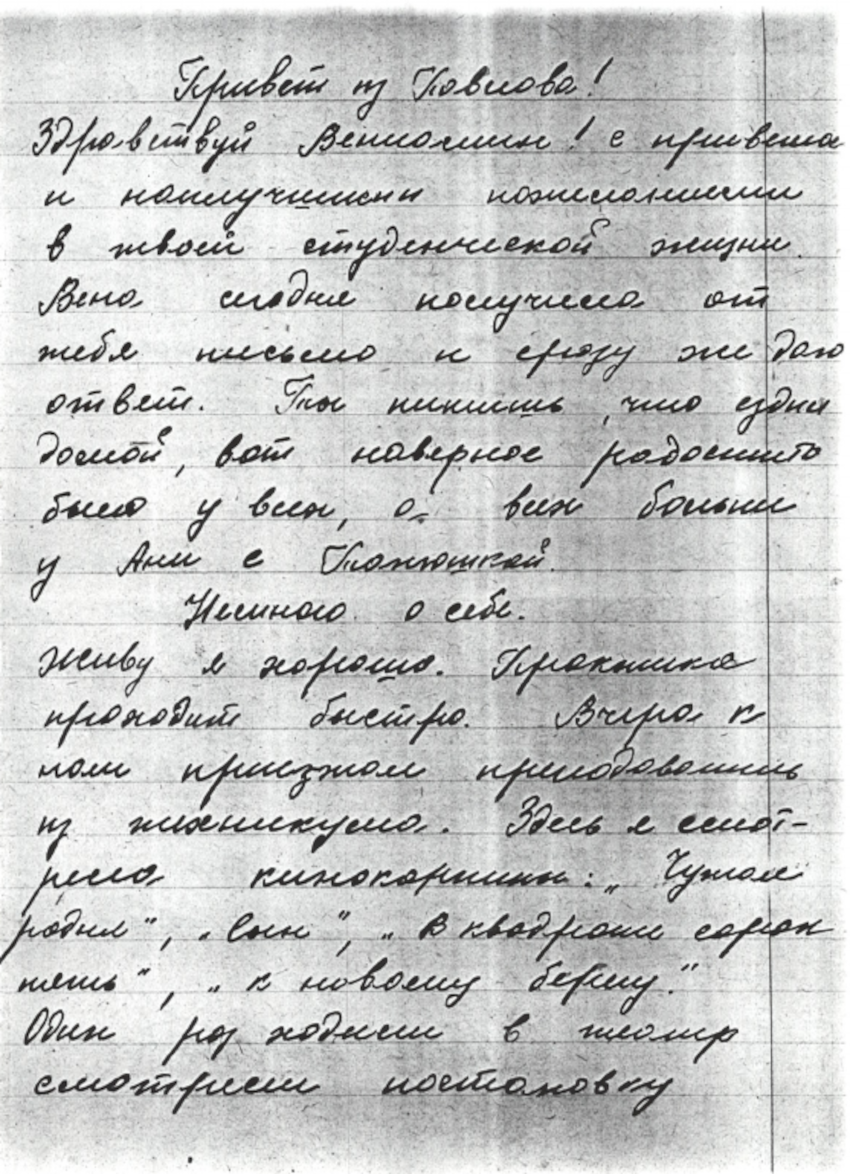 Привет из Павлова!
Здравствуй Вениамин! с привета
и наилучшими пожеланиями
в твоей студенческой жизни.
Вена сегодня получила от
тебя письмо и сразу же даю
ответ. Ты пишешь, что ездил
домой, вот наверное радости то
было у всех, а всех больше
у Ани с Танюшкой.
Немного о себе.
Живу я хорошо. Практика
проходит быстро. Вчера к
нам приезжал преподаватель
из техникума. Здесь я смот-
рела кинокартины: „Чужая
родня", „Сын", „В квадрате сорок
пять", „к новому берегу."
Один раз ходили в театр
смотрели постановку